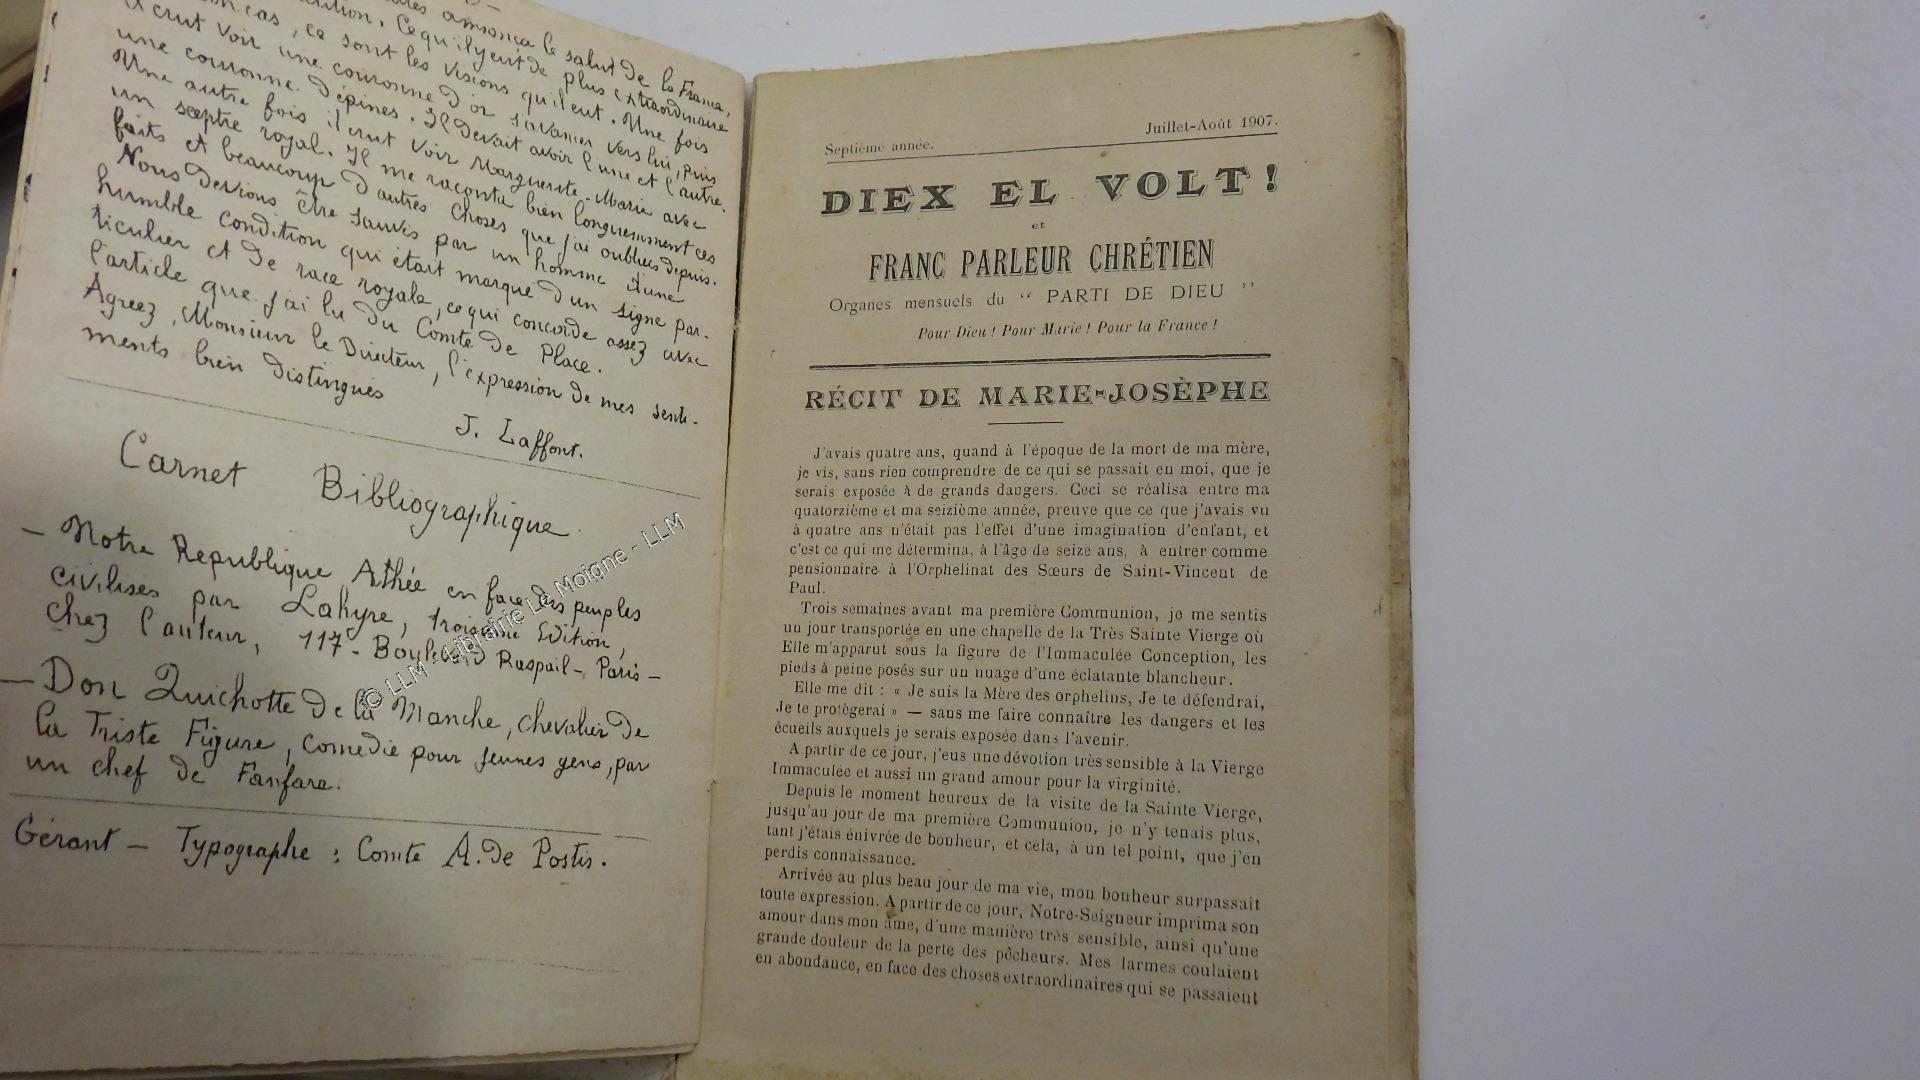 annonça le salut de la France,
cas, ce sont les visions qu'il eut. Une fois
Ce qu'il y eut de plus extraordinaire
il crut voir une couronne d'or s'avancer vers lui, puis
une couronne d'épines. Il devait avoir l'une et l'autre.
Une autre fois il crut voir Marguerite-Marie avec
un sceptre royal. Il me raconta bien longuement ces
faits et beaucoup d'autres choses que j'ai oubliées depuis.
Nous devions être sauvés par un homme d'une
humble condition qui était marqué d'un signe par-
ticulier et de race royale, ce qui concorde assez avec
l'article que j'ai lu du Comte de Place.
Agréez, Monsieur le Directeur, l'expression de mes senti-
ments bien distingués
J. Laffont.
Carnet Bibliographique
— Notre Republique Athée en face des peuples
civilises par Lahyre, troisieme Edition,
chez l'auteur, 117 - Boulevard Raspail - Paris -
— Don Quichotte de la Manche, chevalier de
la Triste Figure, comedie pour jeunes gens, par
un chef de Fanfare.
Gérant — Typographe : Comte A. de Postis.
© LLM - Librairie Le Moigne - LLM
Septième année. Juillet-Août 1907.
DIEX EL VOLT !
et
FRANC PARLEUR CHRÉTIEN
Organes mensuels du “ PARTI DE DIEU ”
Pour Dieu ! Pour Marie ! Pour la France !
RÉCIT DE MARIE-JOSÈPHE
J'avais quatre ans, quand à l'époque de la mort de ma mère,
je vis, sans rien comprendre de ce qui se passait en moi, que je
serais exposée à de grands dangers. Ceci se réalisa entre ma
quatorzième et ma seizième année, preuve que ce que j'avais vu
à quatre ans n'était pas l'effet d'une imagination d'enfant, et
c'est ce qui me détermina, à l'âge de seize ans, à entrer comme
pensionnaire à l'Orphelinat des Sœurs de Saint-Vincent de
Paul.
Trois semaines avant ma première Communion, je me sentis
un jour transportée en une chapelle de la Très Sainte Vierge où
Elle m'apparut sous la figure de l'Immaculée Conception, les
pieds à peine posés sur un nuage d'une éclatante blancheur.
Elle me dit : « Je suis la Mère des orphelins, Je te défendrai,
Je te protègerai » — sans me faire connaître les dangers et les
écueils auxquels je serais exposée dans l'avenir.
A partir de ce jour, j'eus une dévotion très sensible à la Vierge
Immaculée et aussi un grand amour pour la virginité.
Depuis le moment heureux de la visite de la Sainte Vierge,
jusqu'au jour de ma première Communion, je n'y tenais plus,
tant j'étais énivrée de bonheur, et cela, à un tel point, que j'en
perdis connaissance.
Arrivée au plus beau jour de ma vie, mon bonheur surpassait
toute expression. A partir de ce jour, Notre-Seigneur imprima son
amour dans mon âme, d'une manière très sensible, ainsi qu'une
grande douleur de la perte des pêcheurs. Mes larmes coulaient
en abondance, en face des choses extraordinaires qui se passaient